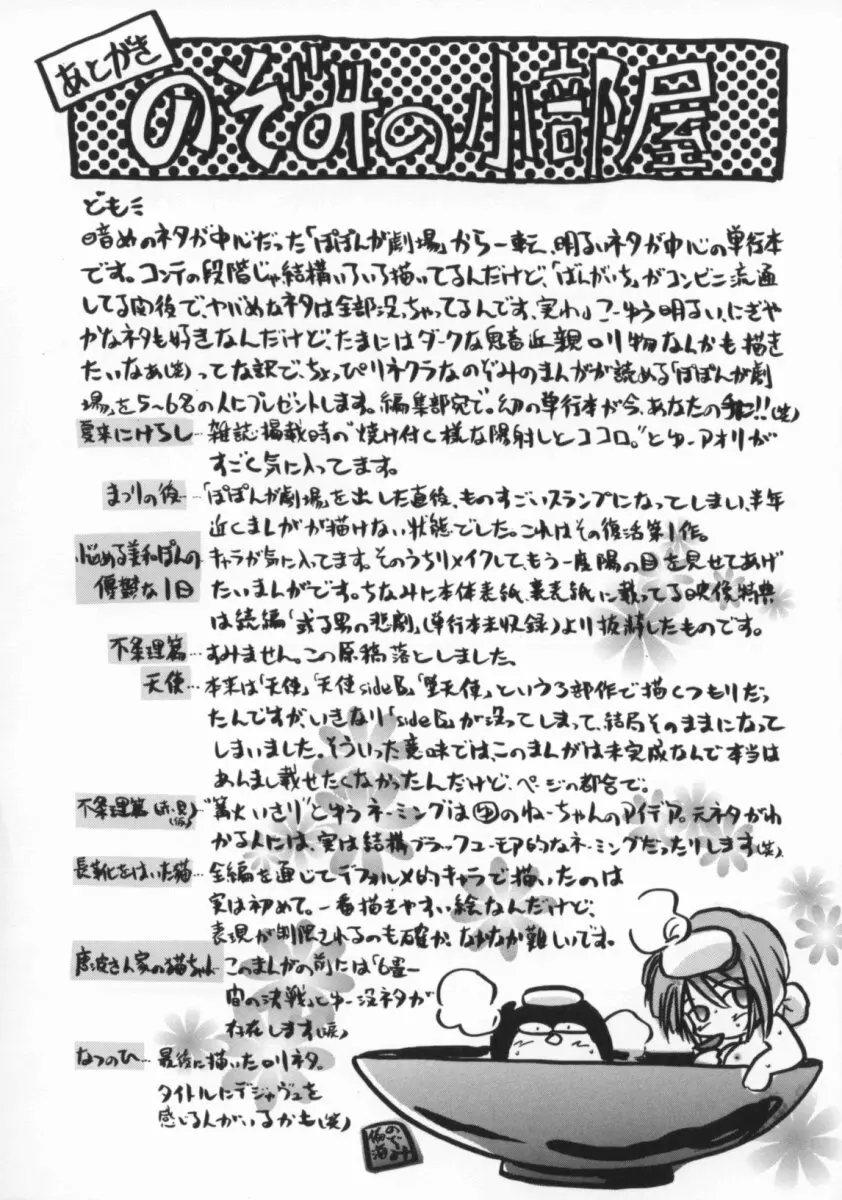 あとがき
のぞみの小部屋
ども
暗めのネタが中心だった「ぽぽんが劇場」から一転、明るいネタが中心の単行本
です。コンテの段階じゃ結構いろいろ描いてるんだけど、「ばんがいち」がコンビニ流通
してる関係で、ヤバめなネタは全部没っちゃってるんです、実わ」こーゆう明るい、にぎや
かなネタも好きなんだけど、たまにはダークな鬼畜近親ロリ物なんかも描き
たいなあ(笑)ってな訳で、ちょっぴりネクラなのぞみのまんがが読める「ぽぽんが劇
場」を5〜6名の人にプレゼントします。編集部宛で。幻の単行本が今、あなたの手に!!(笑)
夏来にけらし…雑誌掲載時の"焼け付く様な陽射しとココロ。"とゆーアオリが
すごく気に入ってます。
まつりの後…「ぽぽんが劇場」を出した直後、ものすごいスランプになってしまい、半年
近くまんがが描けない状態でした。これはその復活第1作。
悩める美和ぽんの
憂鬱な1日
キャラが気に入ってます。そのうちリメイクして、もう一度陽の目を見せてあげ
たいまんがです。ちなみに本体表紙、裏表紙に載ってる映像特典
は続編「或る男の悲劇」(単行本未収録)より抜粋したものです。
不条理篇…すみません。この原稿落としました。
天使…本来は「天使」「天使sideB」「堕天使」という3部作で描くつもりだっ
たんですが、いきなり「sideB」が没ってしまって、結局そのままになって
しまいました。そういった意味では、このまんがは未完成なんで本当は
あんまし載せたくなかったんだけど、ページの都合で。
不条理篇
"篝火いさり"とゆうネーミングは㊥のねーちゃんのアイデア。元ネタがわ
かる人には、実は結構ブラックユーモア的なネーミングだったりします(笑)
長靴をはいた猫…全編を通じてデフォルメ的キャラで描いたのは
実は初めて。一番描きやすい絵なんだけど、
表現が制限されるのも確か。なかなか難しいです。
さん家の猫ちゃん
このまんがの前には「6畳一
間の決戦」とゆー没ネタが
存在します(涙)
なつのひ…最後に描いたロリネタ。
タイトルにデジャヴュを
感じる人がいるかも(笑)